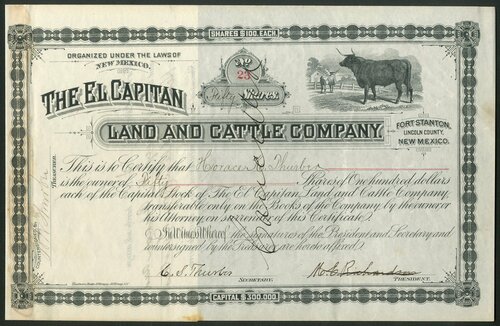 SHARES $100. EACH.
ORGANIZED UNDER THE LAWS OF
NEW MEXICO.
No
23
Fifty Shares.
THE EL CAPITAN
LAND AND CATTLE COMPANY.
FORT STANTON,
LINCOLN COUNTY,
NEW MEXICO.
This is to Certify that Horace K. Thurber
is the owner of Fifty Shares of One hundred dollars
each of the Capital Stock of The El Capitan Land and Cattle Company,
transferable only on the Books of the Company by the owner or
his Attorney, on surrender of this Certificate.
In Witness Whereof, the signatures of the President and Secretary and
countersigned by the Treasurer are hereto affixed.
Cancelled
TREASURER.
SECRETARY.
PRESIDENT.
CAPITAL $300,000.